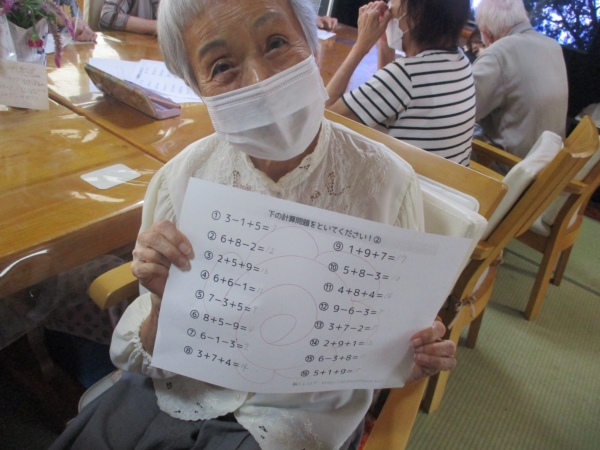 下の計算問題をといてください！②
① 3－1＋5＝
② 6＋8－2＝
③ 2＋5＋9＝
④ 6＋6－1＝
⑤ 7－3＋5＝
⑥ 8＋5－9＝
⑦ 6－1－3＝
⑧ 3＋7＋4＝
⑨ 1＋9＋7＝
⑩ 5＋8－3＝
⑪ 4＋8＋4＝
⑫ 9－6－3＝
⑬ 3＋7－2＝
⑭ 2＋9＋1＝
⑮ 6－3＋8＝
⑯ 5＋1＋9＝